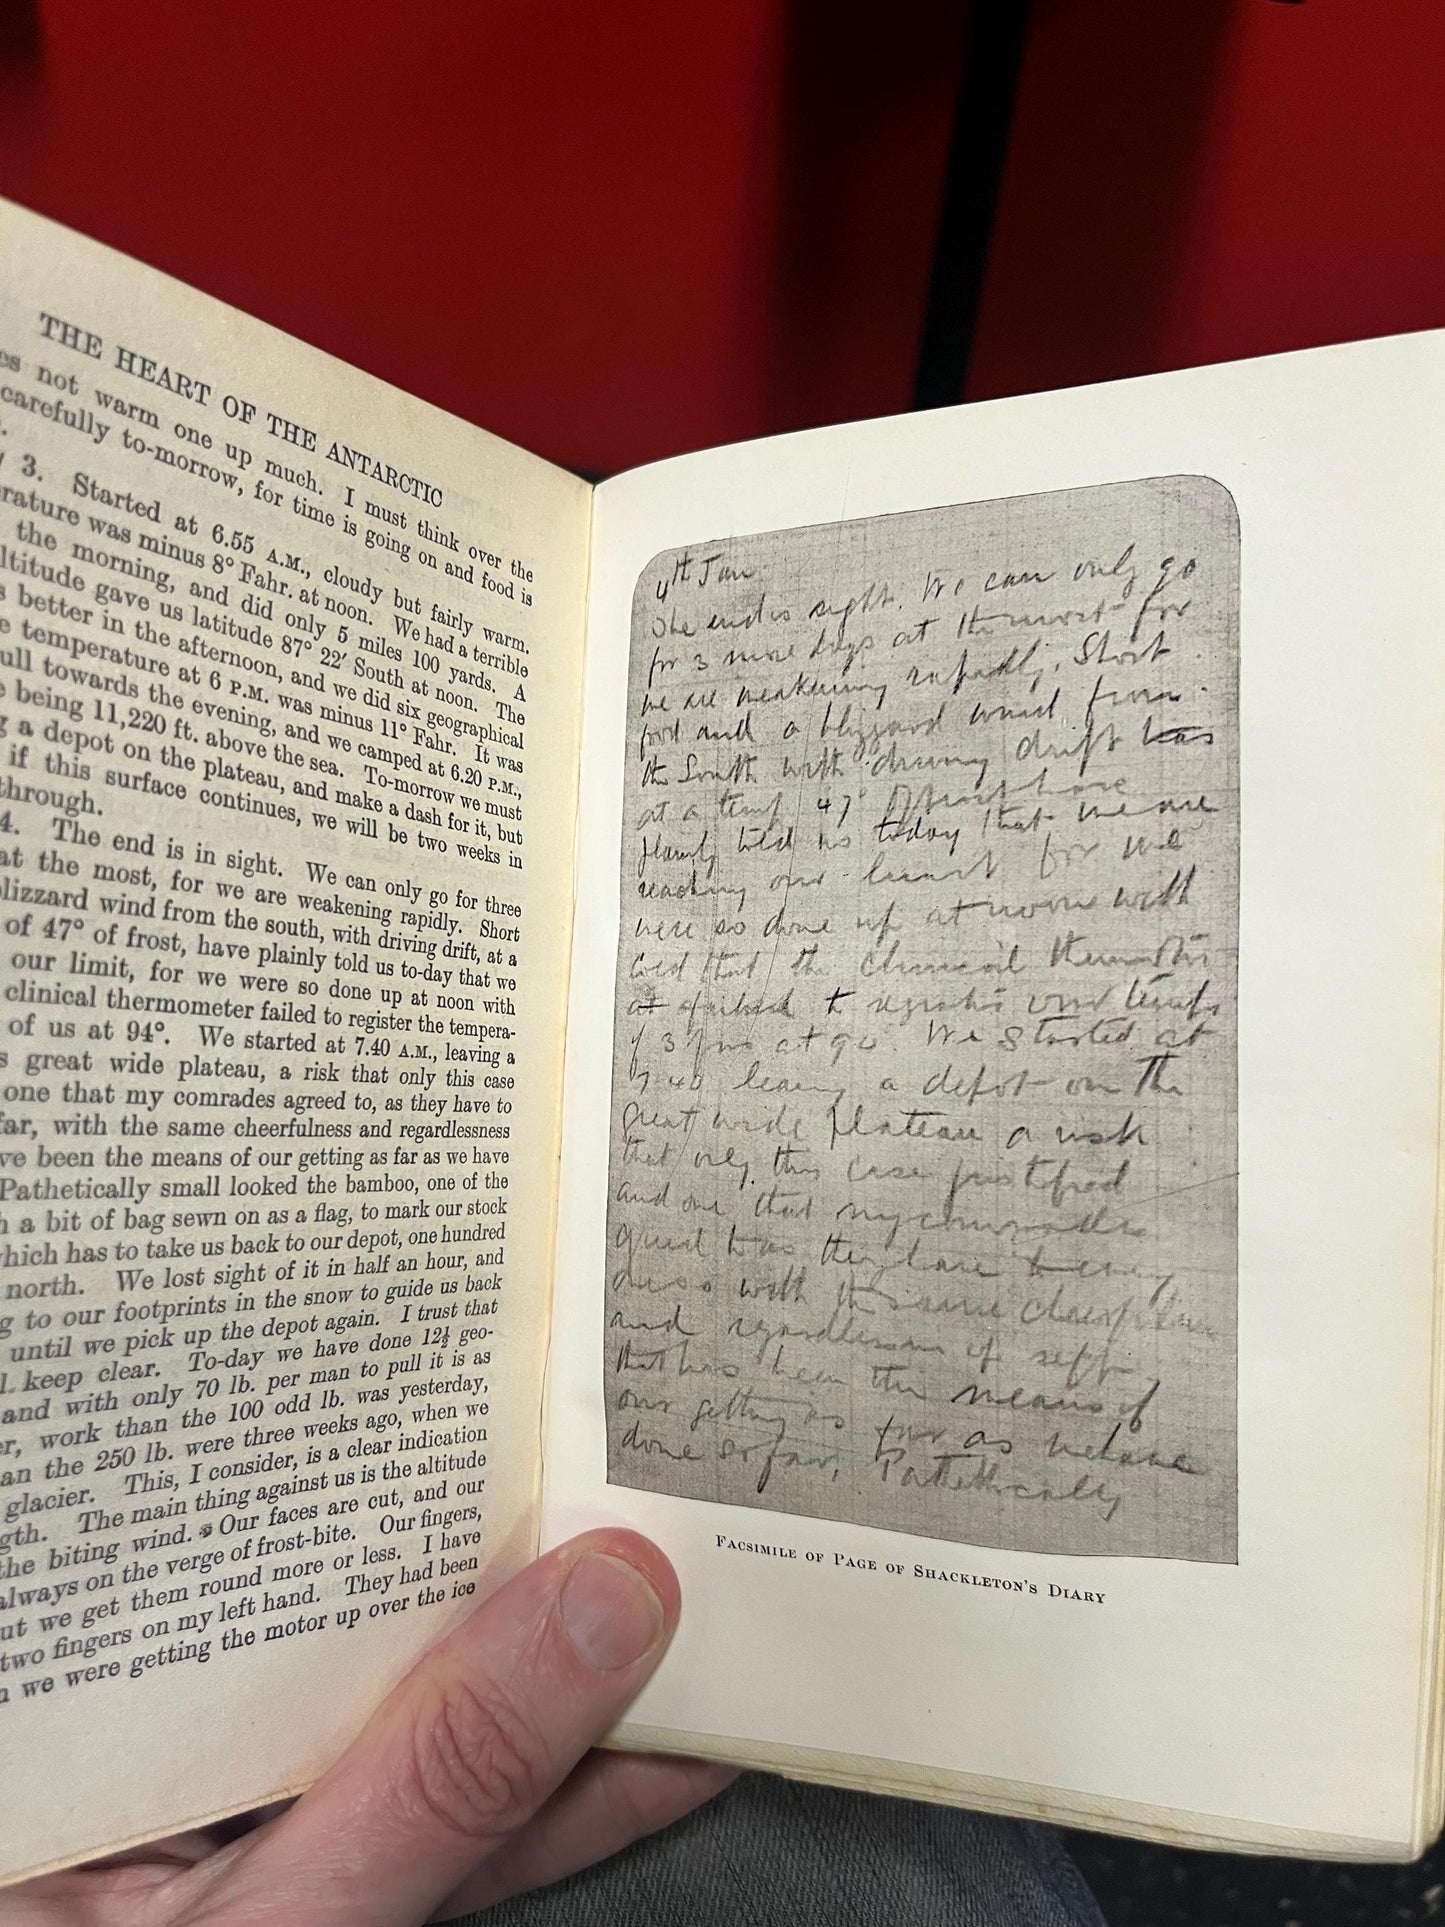 THE HEART OF THE ANTARCTIC
not warm one up much. I must think over the
carefully to-morrow, for time is going on and food is
3. Started at 6.55 A.M., cloudy but fairly warm.
was minus 8° Fahr. at noon. We had a terrible
the morning, and did only 5 miles 100 yards. A
gave us latitude 87° 22′ South at noon. The
better in the afternoon, and we did six geographical
temperature at 6 P.M. was minus 11° Fahr. It was
towards the evening, and we camped at 6.20 P.M.,
being 11,220 ft. above the sea. To-morrow we must
a depot on the plateau, and make a dash for it, but
if this surface continues, we will be two weeks in
through.
4. The end is in sight. We can only go for three
at the most, for we are weakening rapidly. Short
wind from the south, with driving drift, at a
of 47° of frost, have plainly told us to-day that we
our limit, for we were so done up at noon with
clinical thermometer failed to register the tempera-
of us at 94°. We started at 7.40 A.M., leaving a
great wide plateau, a risk that only this case
one that my comrades agreed to, as they have to
far, with the same cheerfulness and regardlessness
been the means of our getting as far as we have
Pathetically small looked the bamboo, one of the
a bit of bag sewn on as a flag, to mark our stock
which has to take us back to our depot, one hundred
north. We lost sight of it in half an hour, and
to our footprints in the snow to guide us back
until we pick up the depot again. I trust that
keep clear. To-day we have done 12½ geo-
and with only 70 lb. per man to pull it is as
work than the 100 odd lb. was yesterday,
an the 250 lb. were three weeks ago, when we
glacier. This, I consider, is a clear indication
The main thing against us is the altitude
the biting wind. Our faces are cut, and our
always on the verge of frost-bite. Our fingers,
but we get them round more or less. I have
two fingers on my left hand. They had been
we were getting the motor up over the ice
4th Jan
The end is sight. We can only go
for 3 more days at the most for
we are weakening rapidly. Short
food and a blizzard wind from
the South with driving drift has
at a temp 47° of frost have
plainly told us today that we are
reaching our limit for we
were so done up at noon with
cold that the clinical
failed to our temps
of 3 of us at 94. We started at
7 40 leaving a depot on the
great wide plateau a risk
that only this case justified
and one that my comrades
they have to every
one so with the same cheerfulness
and regardlessness of self
that has been the means of
our getting as far as we have
done so far. Pathetically
FACSIMILE OF PAGE OF SHACKLETON'S DIARY